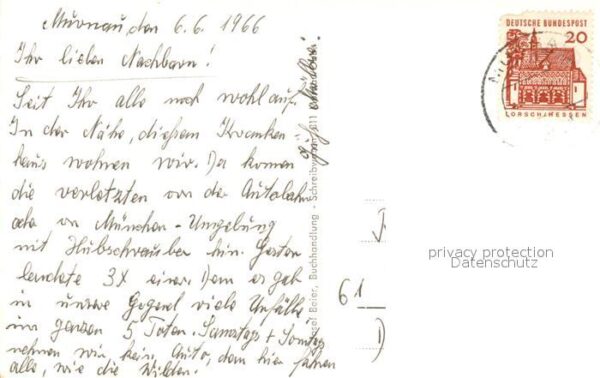 Murnau, den 6.6.1966
Ihr lieben Nachbarn!
Seid Ihr alle noch wohlauf.
In der Nähe, diesem Kranken-
haus wohnen wir. Da komen
die verletzten von der Autobahn
oda von München-Umgebung
mit Hübschrauber hin. Gestern
3x einer. Den es gab
in unsere Gegend viele Unfälle
im ganzen 5 Toten. Samstags + Sonntag
nehmen wir kein Auto, denn hier fahren
alle, wie die Wilden.
Beier, Buchhandlung - Schreibwaren, 811
DEUTSCHE BUNDESPOST
20
LORSCH/HESSEN
privacy protection
Datenschutz
61